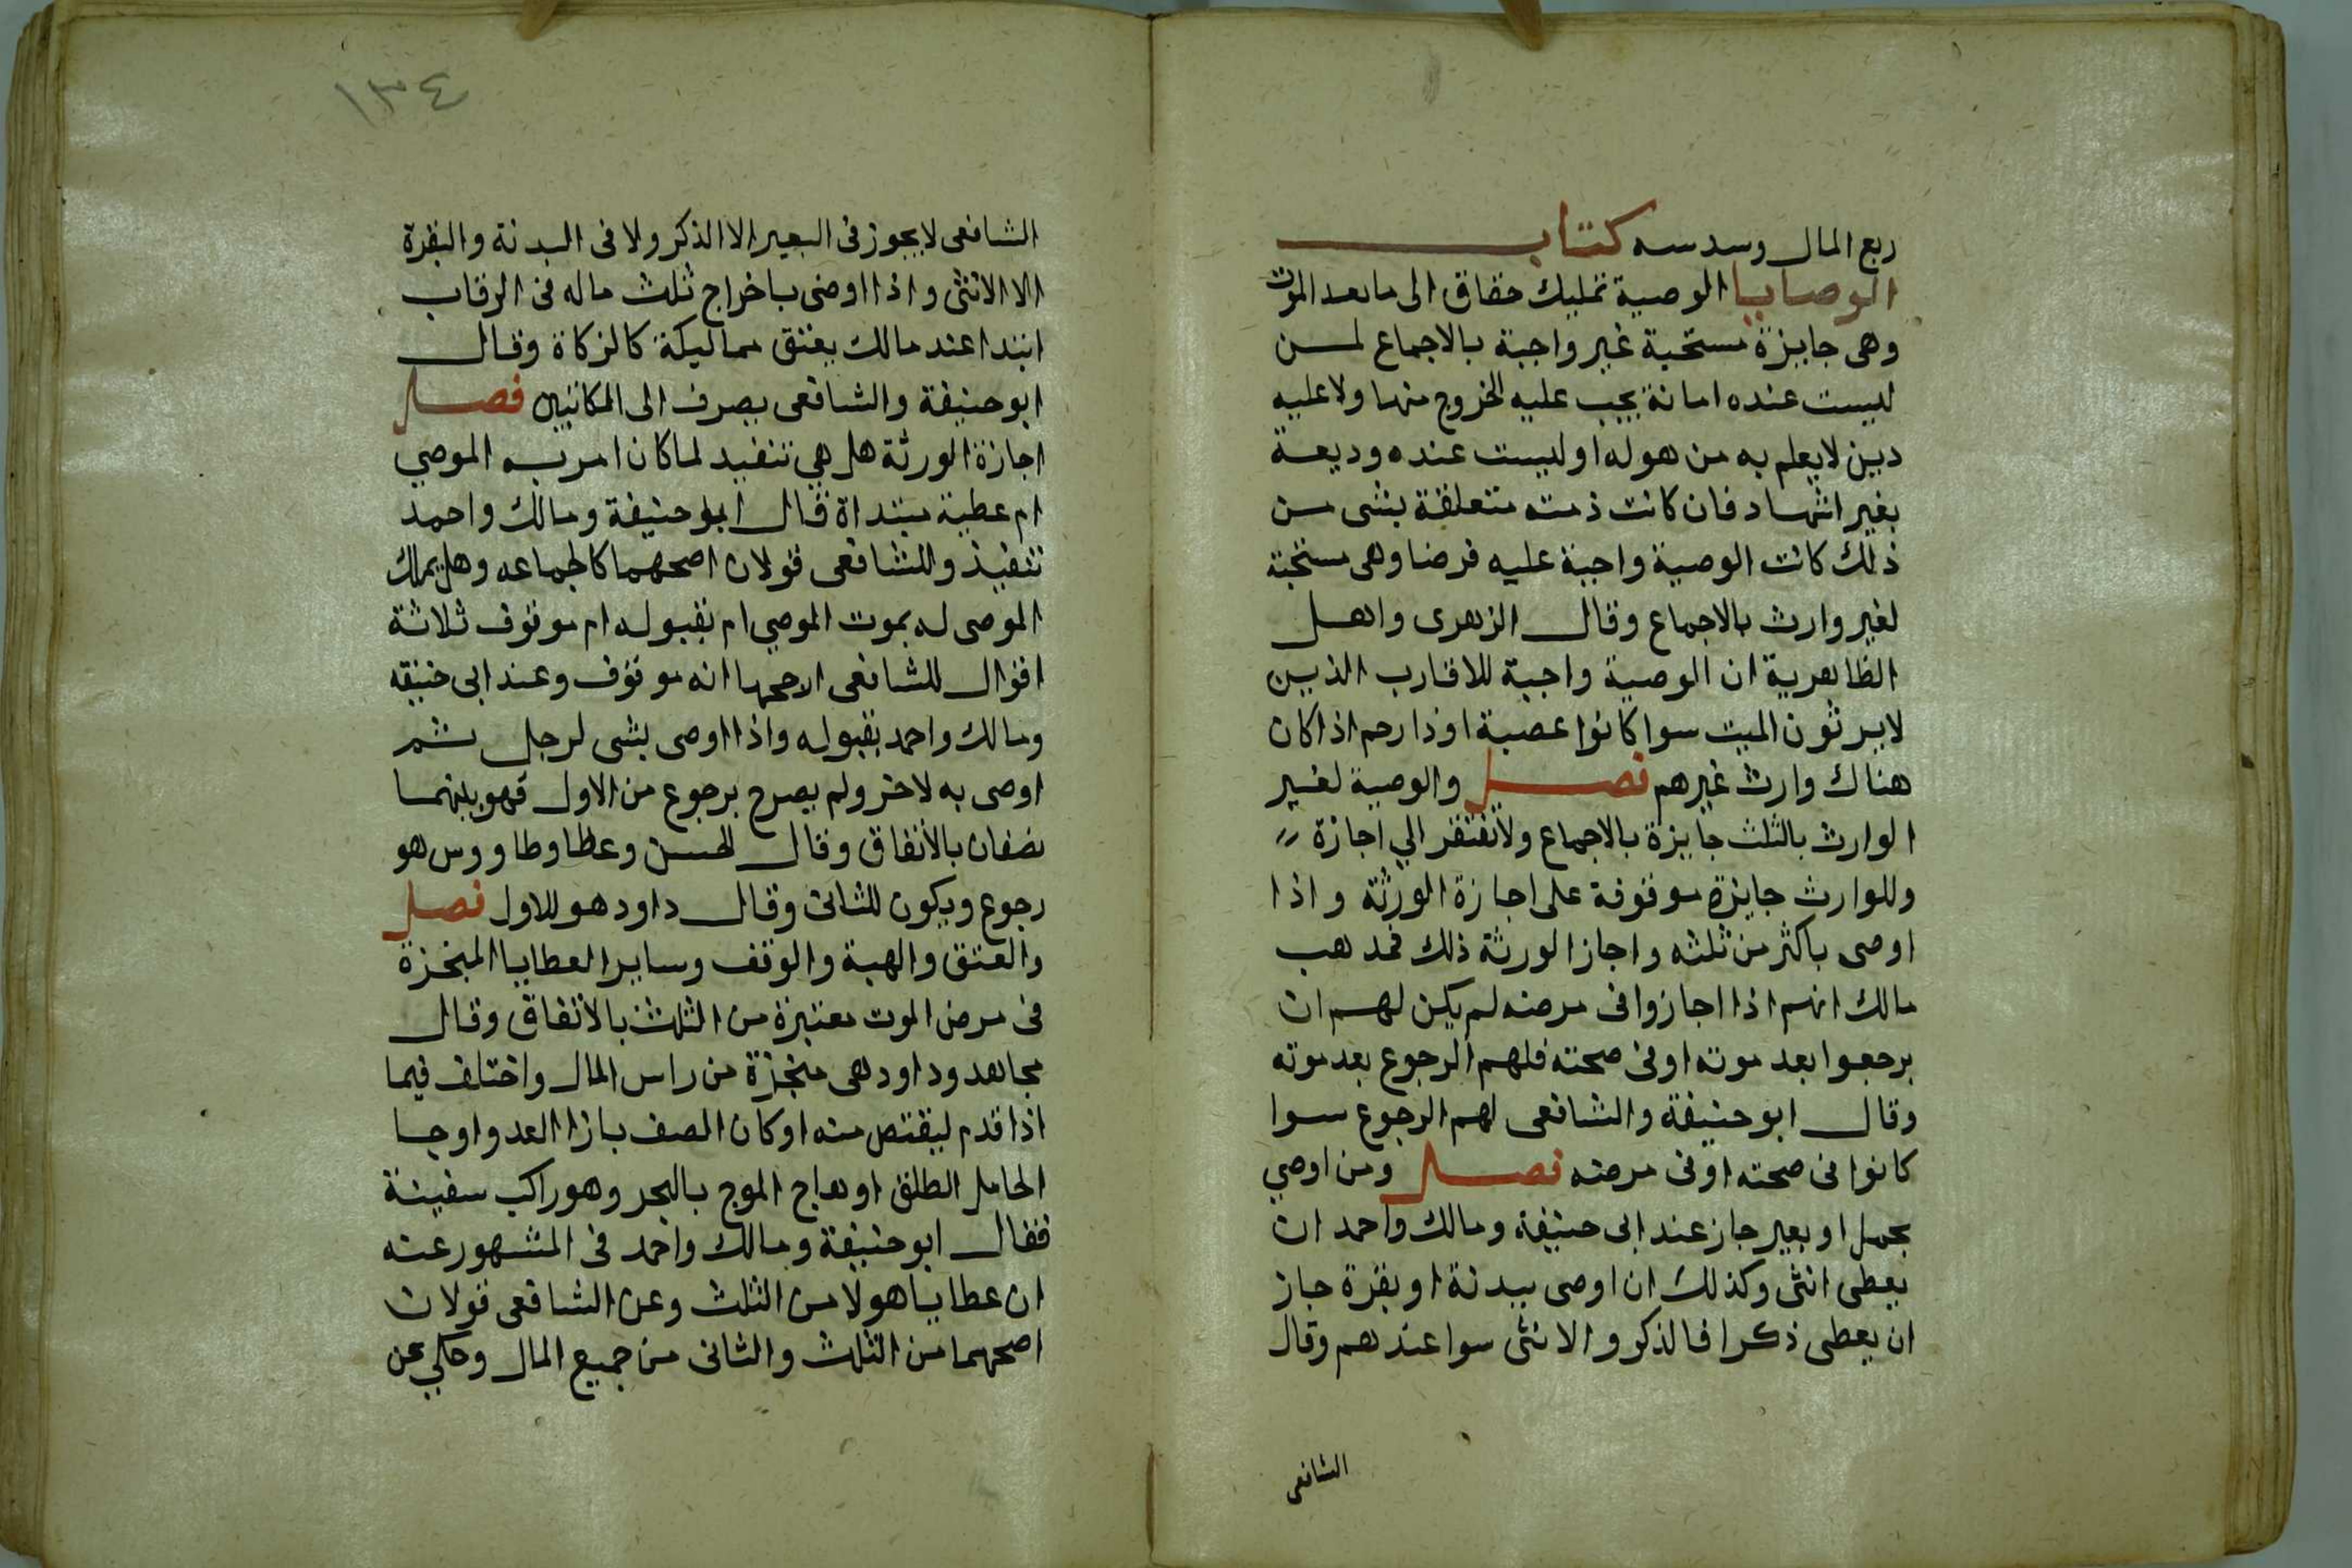 ربع المال وسدسه كتاب
الوصايا الوصية تمليك مضاق الى ما بعد الموت
وهى جايزة مستحبة غير واجبة بالاجماع لمن
ليست عنده امانة يجب عليه الخروج منها ولا عليه
دين لا يعلم به من هو له او ليست عنده وديعة
بغير اشهاد فان كانت ذمته متعلقة بشى من
ذلك كانت الوصية واجبة عليه فرضا وهى مستحبة
لغير وارث بالاجماع وقال الزهرى واهل
الظاهرية ان الوصية واجبة للاقارب الذين
لا يرثون الميت سوا كانوا عصبة او ذا رحم اذا كان
هناك وارث غيرهم فصل والوصية لغير
الوارث بالثلث جايزة بالاجماع ولا تفتقر الي اجازة
وللوارث جايزة موقوفة على اجازة الورثة واذا
اوصى باكثر من ثلثه واجاز الورثة ذلك فمذهب
مالك انهم اذا اجازوا فى مرضه لم يكن لهم ان
يرجعوا بعد موته او فى صحته فلهم الرجوع بعد موته
وقال ابو حنيفة والشافعى لهم الرجوع سوا
كانوا فى صحته او فى مرضه فصل ومن اوصي
بجمل او بعير جاز عند ابى حنيفة ومالك واحمد ان
يعطى انثى وكذلك ان اوصى ببدنة او بقرة جاز
ان يعطى ذكرا فالذكر والانثى سوا عندهم وقال
الشافعى
١٣٤
الشافعى لا يجوز فى البعير الا الذكر ولا فى البدنة والبقرة
الا الانثى واذا اوصى باخراج ثلث ماله فى الرقاب
ابتدا عند مالك بعتق مماليكة كالزكاة وقال
ابو حنيفة والشافعى يصرف الى المكاتبين فصل
اجازة الورثة هل هي تنفيد لما كان امر به الموصي
ام عطية مبتداة قال ابو حنيفة ومالك واحمد
تنفيذ وللشافعى قولان اصحهما كالجماعه وهل يملك
الموصى له بموت الموصي ام بقبوله ام موقوف ثلاثة
اقوال للشافعى الاصحها انه موقوف وعند ابى حنيفه
ومالك واحمد بقبوله واذا اوصى بشى لرجل ثم
اوصى به لاخر ولم يصرح برجوع من الاول فهو بينهما
نصفان بالاتفاق وقال الحسن وعطا وطاووس هو
رجوع ويكون للثانى وقال داود هو للاول فصل
والعتق والهبة والوقف وساير العطايا المنجزة
فى مرض الموت معتبرة من الثلث بالاتفاق وقال
مجاهد وداود هى منجزة من راس المال واختلف فيما
اذا قدم ليقتص منه او كان الصف بازا العدو او جا
الحامل الطلق او هاج الموج بالبحر وهو راكب سفينة
فقال ابو حنيفة ومالك واحمد فى المشهور عنه
ان عطايا هولا من الثلث وعن الشافعى قولان
اصحهما من الثلث والثانى من جميع المال وحكي عن